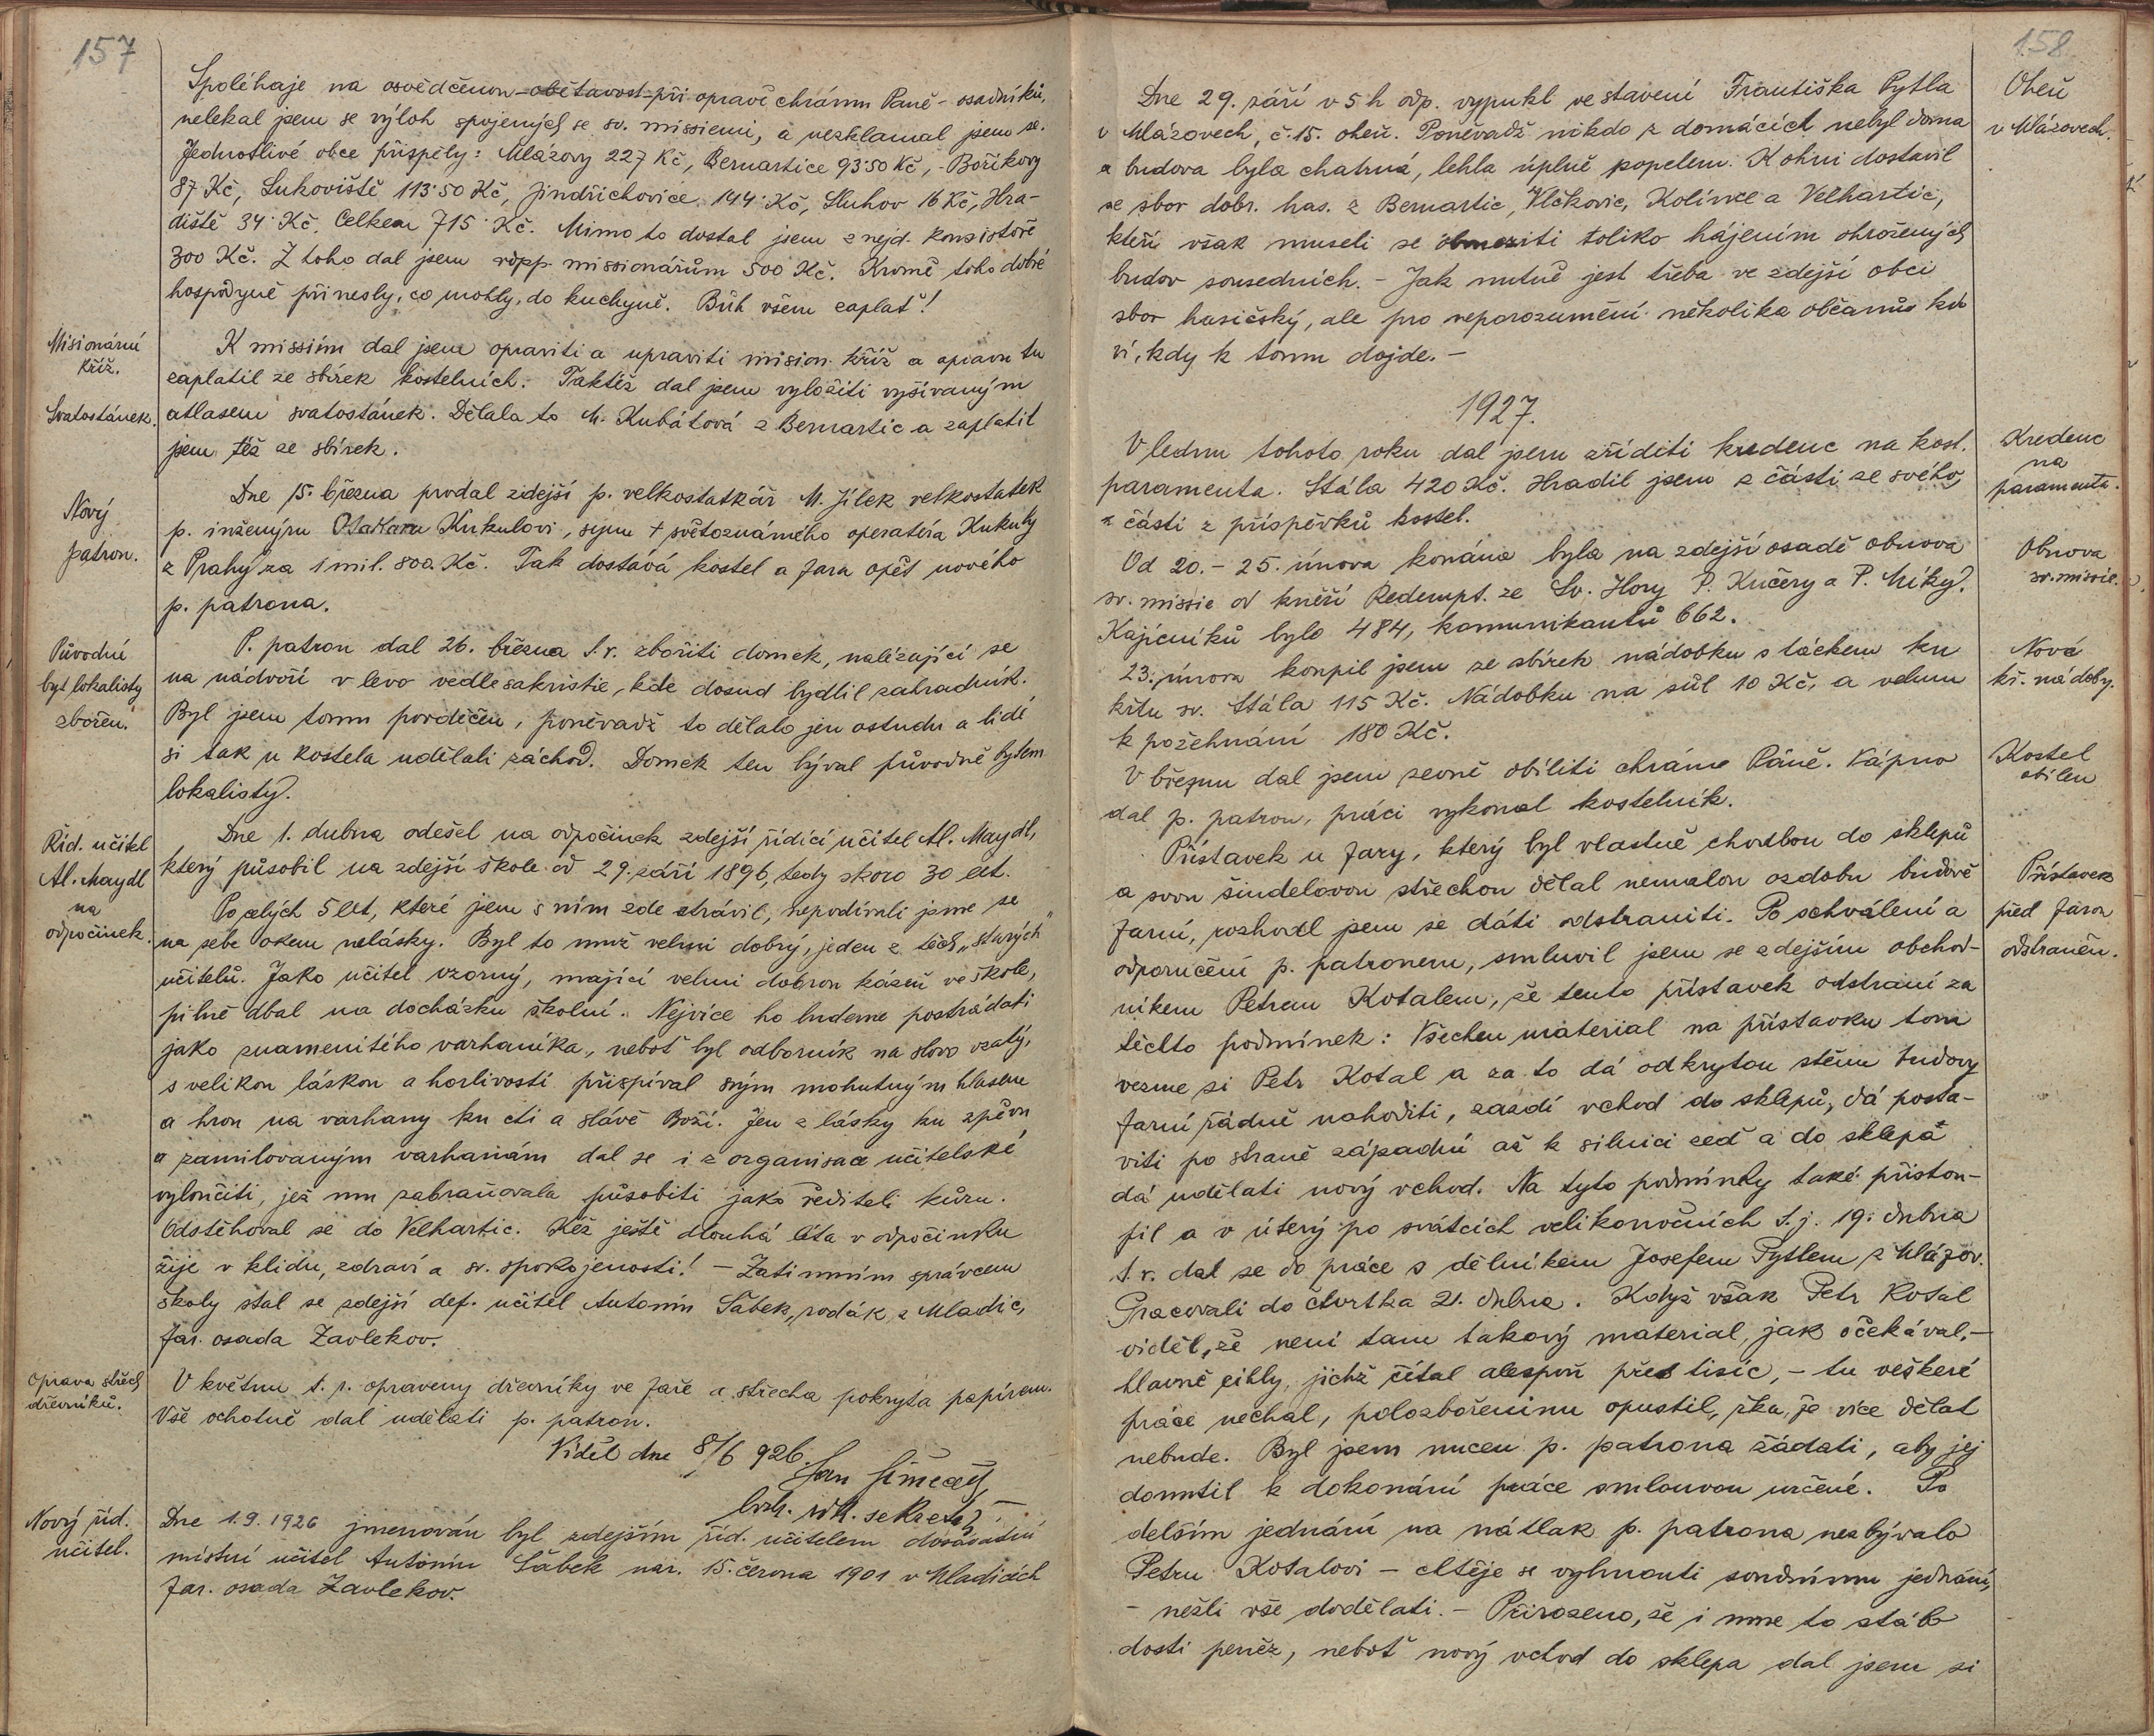 157
Spoléhaje na osvědčenou obětavost při opravě chrámu Paně - osadníků,
nelekal jsem se výloh spojených se sv. missiemi, a nezklamal jsem se.
Jednotlivé obce přispěly: Mlázovy 227 Kč, Bernartice 93·50 Kč, - Boříkovy
87 Kč, Lukoviště 113·50 Kč, Jindřichovice 144· Kč, Sluhov 16 Kč, Hra-
diště 34· Kč. Celkem 715· Kč. Mimo to dostal jsem z nejd. konsistoře
300 Kč. Z toho dal jsem vdpp. missionářům 500 Kč. Kromě toho dobré
hospodyně přinesly, co mohly, do kuchyně. Bůh všem zaplať!
Misionární
kříž.
K missiím dal jsem opraviti a upraviti mision. kříž a opravu tu
zaplatil ze sbírek kostelních. Taktéž dal jsem vyložiti vyšívaným
Svatostánek.
atlasem svatostánek. Dělala to M. Kubátová z Bernartic a zaplatil
jsem též ze sbírek.
Nový
patron.
Dne 15. března prodal zdejší p. velkostatkář M. Jílek velkostatek
p. inženýru Otakaru Kukulovi, synu + světoznámého operatéra Kukuly
z Prahy za 1 mil. 800. Kč. Tak dostává kostel a fara opět nového
p. patrona.
Původní
byt lokalisty
zbořen.
P. patron dal 26. března t.r. zbořiti domek, nalézající se
na nádvoří v levo vedle sakristie, kde dosud bydlil zahradník.
Byl jsem tomu povděčen, poněvadž to dělalo jen ostudu a lidé
si tak u kostela udělali záchod. Domek ten býval původně bytem
lokalisty.
Říd. učitel
Al. Maydl
na
odpočinek.
Dne 1. dubna odešel na odpočinek zdejší řídící učitel Al. Maydl,
který působil na zdejší škole od 29. září 1896, tedy skoro 30 let.
Po celých 5 let, které jsem s ním zde strávil, nepodívali jsme se
na sebe okem nelásky. Byl to muž velmi dobrý, jeden z těch „starých“
učitelů. Jako učitel vzorný, mající velmi dobrou kázeň ve škole,
pilně dbal na docházku školní. Nejvíce ho budeme postrádati
jako znamenitého varhaníka, neboť byl odborník na slovo vzatý,
s velikou láskou a horlivostí přispíval svým mohutným hlasem
a hrou na varhany ku cti a slávě Boží. Jen z lásky ku zpěvu
a zamilovaným varhanám dal se i z organisace učitelské
vyloučiti, jež mu zabraňovala působiti jako řediteli kůru.
Odstěhoval se do Velhartic. Kéž ještě dlouhá léta v odpočinku
žije v klidu, zdraví a sv. spokojenosti! - Zatimním správcem
školy stal se zdejší def. učitel Antonín Šábek, rodák z Mladic,
far. osada Zavlekov.
Oprava střech
dřevníků.
V květnu t. r. opraveny dřevníky ve faře a střecha pokryta papírem.
Vše ochotně dal udělati p. patron.
Viděl dne 8/6 926.
Jan
sekretář
Nový říd.
učitel.
Dne 1.9. 1926 jmenován byl zdejším říd. učitelem dosavadní
místní učitel Antonín Šábek nar. 15. června 1901 v Mladicích
far. osada Zavlekov.
158
Oheň
v Mlázovech.
Dne 29. září v 5 h odp. vypukl ve stavení Františka Pytla
v Mlázovech, č. 15. oheň. Poněvadž nikdo z domácích nebyl doma
a budova byla chatrná, lehla úplně popelem. K ohni dostavil
se sbor dobr. has. z Bernartic, Vlčkovic, Kolince a Velhartic,
kteří však museli se obmeziti toliko hájením ohrožených
budov sousedních. - Jak nutně jest třeba ve zdejší obci
sbor hasičský, ale pro neporozumění několika občanů kdo
ví, kdy k tomu dojde. -
1927.
Kredenc
na
paramenta.
V lednu tohoto roku dal jsem zříditi kredenc na kost.
paramenta. Stála 420 Kč. Hradil jsem z části ze svého,
z části z příspěvků kostel.
Obnova
sv. missie.
Od 20. - 25. února konána byla na zdejší osadě obnova
sv. missie od kněží Redempt. ze Sv. Hory P. Kučery a P. Míky.
Kajícníků bylo 484, komunikantů 662.
Nové
kř. nádoby.
23. února koupil jsem ze sbírek nádobku s táckem ku
křtu sv. Stála 115 Kč. Nádobku na sůl 10 Kč, a velum
k požehnání 180 Kč.
Kostel
obílen
V březnu dal jsem zevně obíliti chrám Páně. Vápno
dal p. patron, práci vykonal kostelník.
Přístavek
před farou
odstraněn.
Přístavek u fary, který byl vlastně chodbou do sklepů
a svou šindelovou střechou dělal nemalou ozdobu budově
farní, rozhodl jsem se dáti odstraniti. Po schválení a
odporučení p. patronem, smluvil jsem se zdejším obchod-
níkem Petrem Kotalem, že tento přístavek odstraní za
těchto podmínek: Všechen material na přístavku tom
vezme si Petr Kotal a za to dá odkrytou stěnu budovy
farní řádně nahoditi, zazdí vchod do sklepů, dá posta-
viti po straně západní až k silnici zeď a do sklepa
dá udělati nový vchod. Na tyto podmínky také přistou-
pil a v úterý po svátcích velikonočních t.j. 19. dubna
t. r. dal se do práce s dělníkem Josefem Pytlem z Mlázov.
Pracovali do čtvrtka 21. dubna. Když však Petr Kotal
viděl, že není tam takový material, jak očekával, -
hlavně cihly, jichž čítal alespoň přes tisíc, - tu veškeré
práce nechal, polozbořeninu opustil, řka, že více dělat
nebude. Byl jsem nucen p. patrona žádati, aby jej
donutil k dokonání práce smlouvou určené. Po
delším jednání na nátlak p. patrona nezbývalo
Petru Kotalovi - chtěje se vyhnouti soudnímu jednání,
- nežli vše dodělati. - Přirozeno, že i mne to stálo
dosti peněz, neboť nový vchod do sklepa dal jsem si